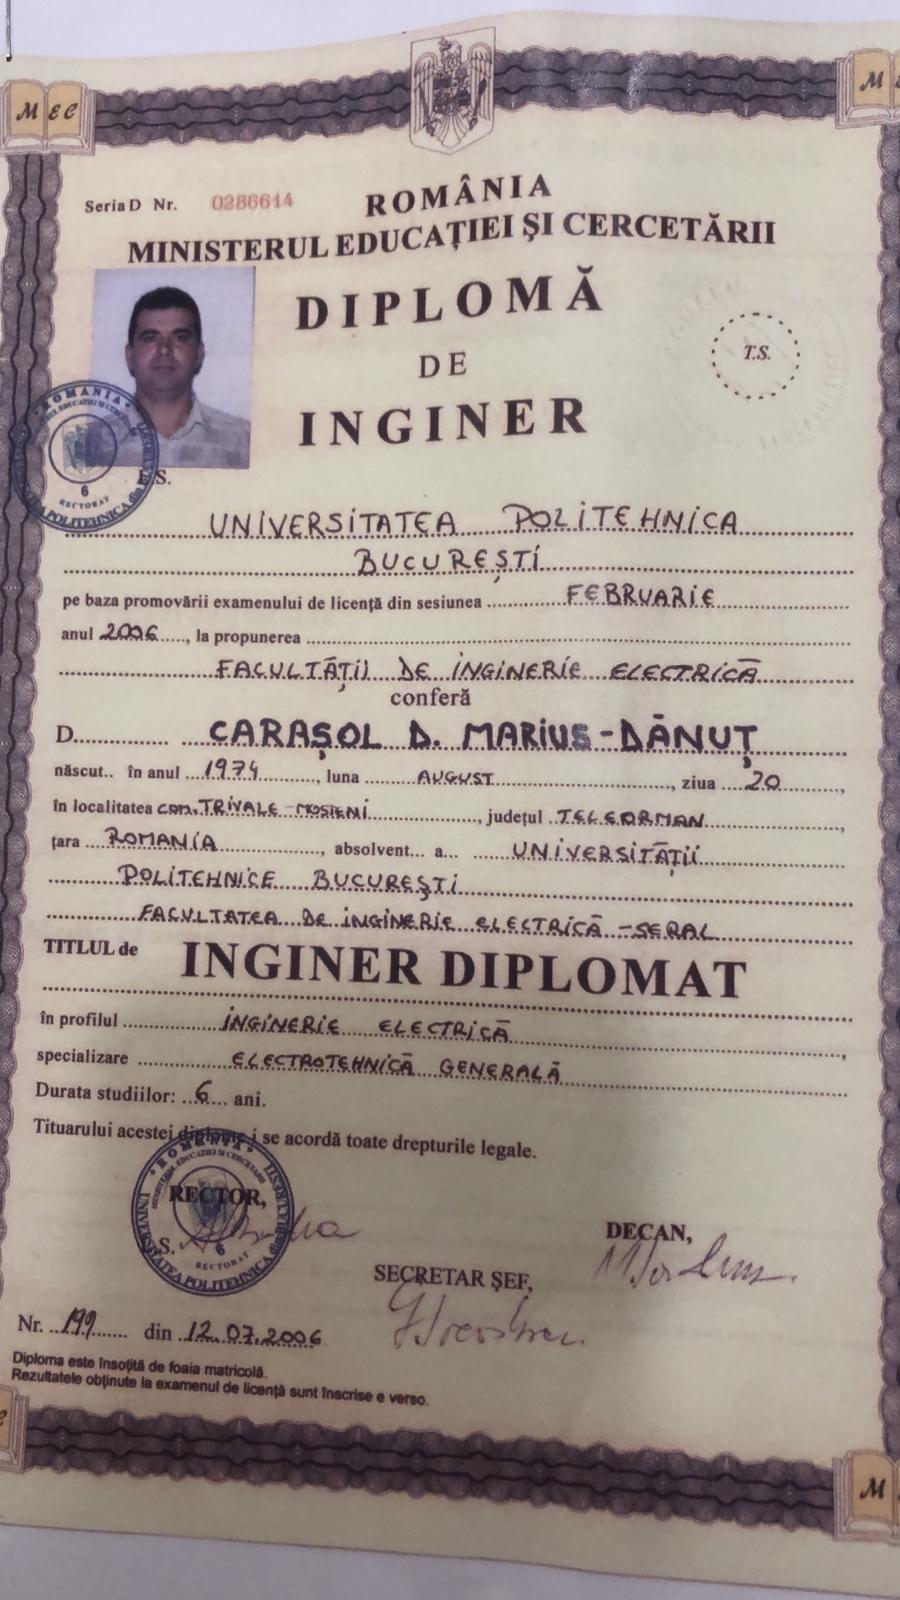 MEC
M
Seria D Nr. 0286614
ROMÂNIA
MINISTERUL EDUCAȚIEI ȘI CERCETĂRII
DIPLOMĂ
DE
INGINER
T.S.
ROMANIA
6
RECTORAT
POLITEHNICA din
UNIVERSITATEA POLITEHNICA
BUCUREȘTI
pe baza promovării examenului de licență din sesiunea FEBRUARIE
anul 2006, la propunerea
FACULTĂȚII DE INGINERIE ELECTRICĂ
conferă
D. CARAȘOL D. MARIUS-DĂNUȚ
născut.. în anul 1974, luna AUGUST, ziua 20,
în localitatea COM. TRIVALE-MOSTENI, județul TELEORMAN,
țara ROMANIA, absolvent... a... UNIVERSITĂȚII
POLITEHNICE BUCUREȘTI
FACULTATEA DE INGINERIE ELECTRICĂ-SERAL
TITLUL de INGINER DIPLOMAT
în profilul INGINERIE ELECTRICĂ,
specializare ELECTROTEHNICĂ GENERALĂ
Durata studiilor: 6 ani.
Tituarului acestei diplome i se acordă toate drepturile legale.
ROMANIA
MINISTERUL EDUCATIEI SI CERCETARII
UNIVERSITATEA POLITEHNICA din BUCURESTI
6
RECTORAT
RECTOR,
DECAN,
SECRETAR ȘEF,
Nr. 199 din 12.07.2006
Diploma este însoțită de foaia matricolă.
Rezultatele obținute la examenul de licență sunt înscrise e verso.
M